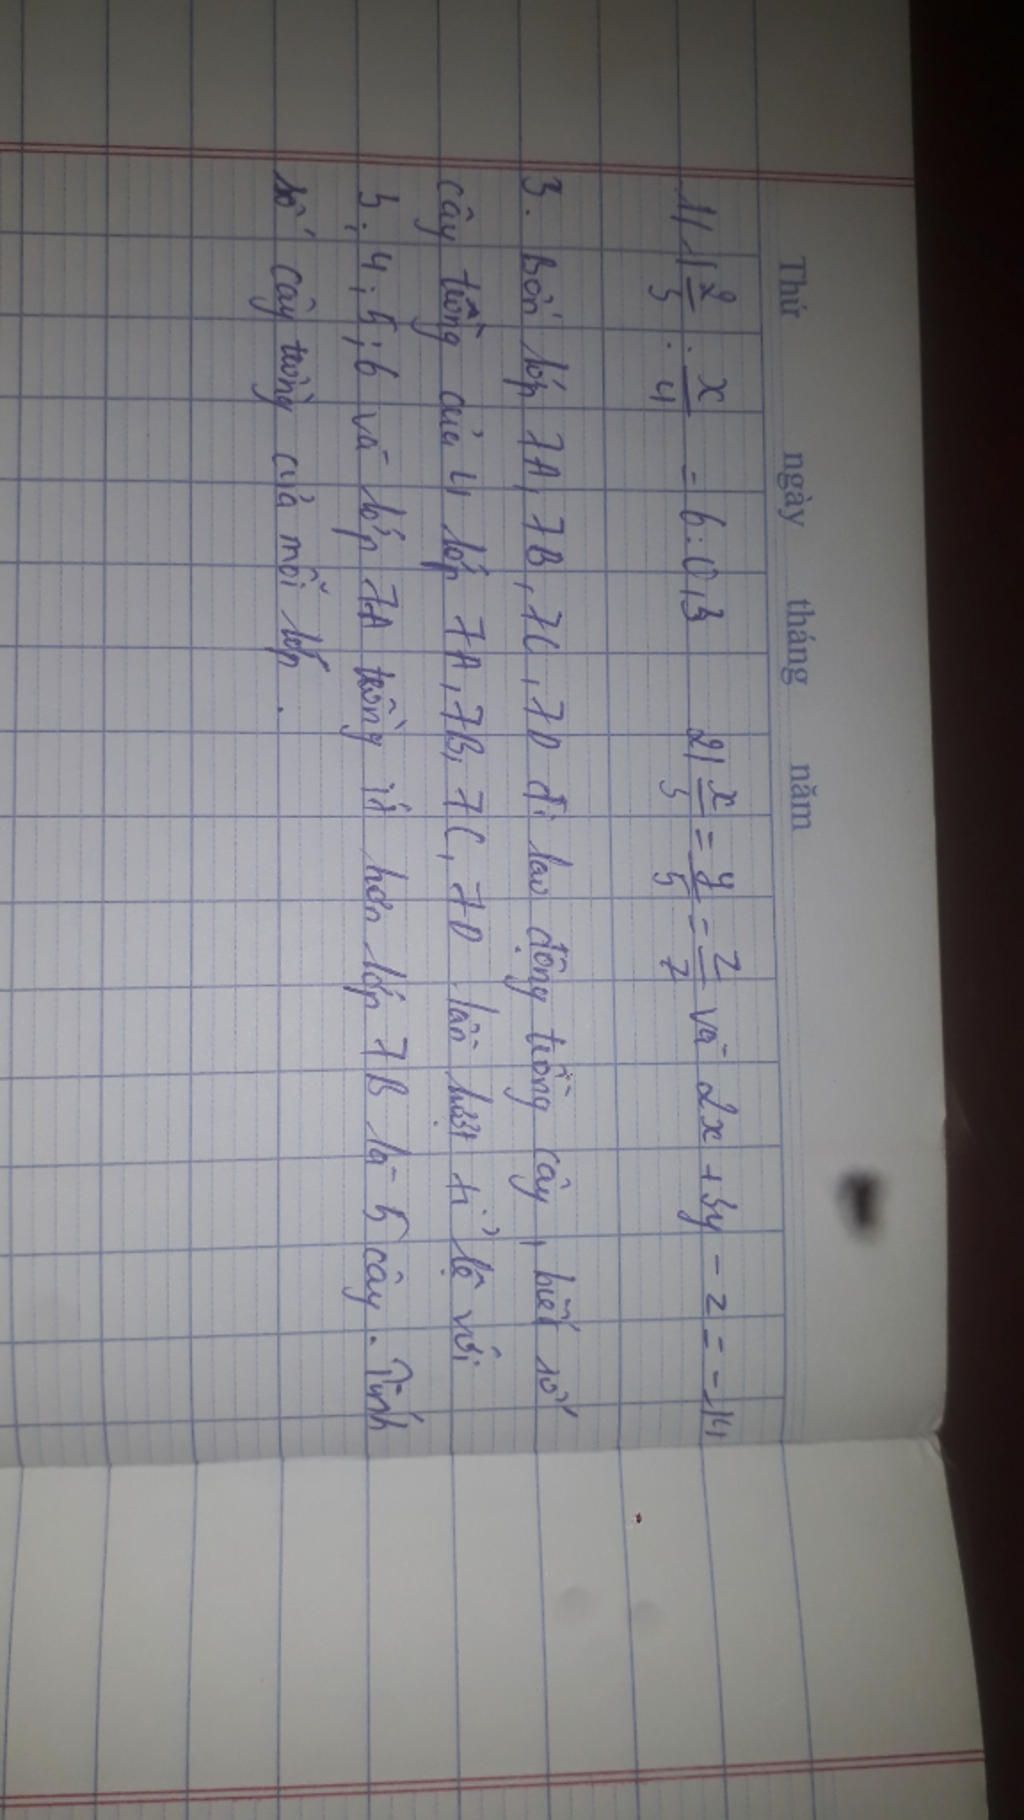 Thứ ngày tháng năm
1/ 1 2/3 : x/4 = 6 : 0,3 2/ x/3 = y/5 = z/7 và 2x + 3y - z = -14
3. Bốn lớp 7A, 7B, 7C, 7D đi lao động trồng cây, biết số
cây trồng của 4 lớp 7A, 7B, 7C, 7D lần lượt tỉ lệ với
3; 4; 5; 6 và lớp 7A trồng ít hơn lớp 7B là 5 cây. Tính
số cây trồng của mỗi lớp.